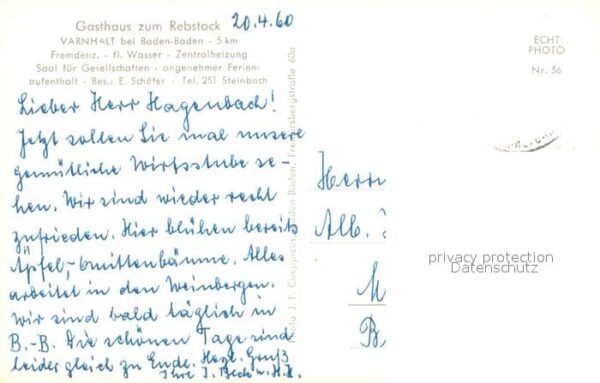 Gasthaus zum Rebstock
20.4.60
VARNHALT bei Baden-Baden - 5 km
Fremdenz. - fl. Wasser - Zentralheizung
Saal für Gesellschaften - angenehmer Ferien-
aufenthalt - Bes.: E. Schöfer - Tel. 251 Steinbach
Lieber Herr Hagenbach!
Jetzt sollen Sie mal unsere
gemütliche Wirtsstube se-
hen. Wir sind wieder recht
zufrieden. Hier blühen bereits
Äpfel,- Quittenbäume. Alles
arbeitet in den Weinbergen.
Wir sind bald täglich in
B.-B. Die schönen Tage sind
leider gleich zu Ende. Herzl. Gruß
Ihre J. Bech u. H.K.
ECHT
PHOTO
Nr. 56
Herrn
Alb.
M
B
privacy protection
Datenschutz